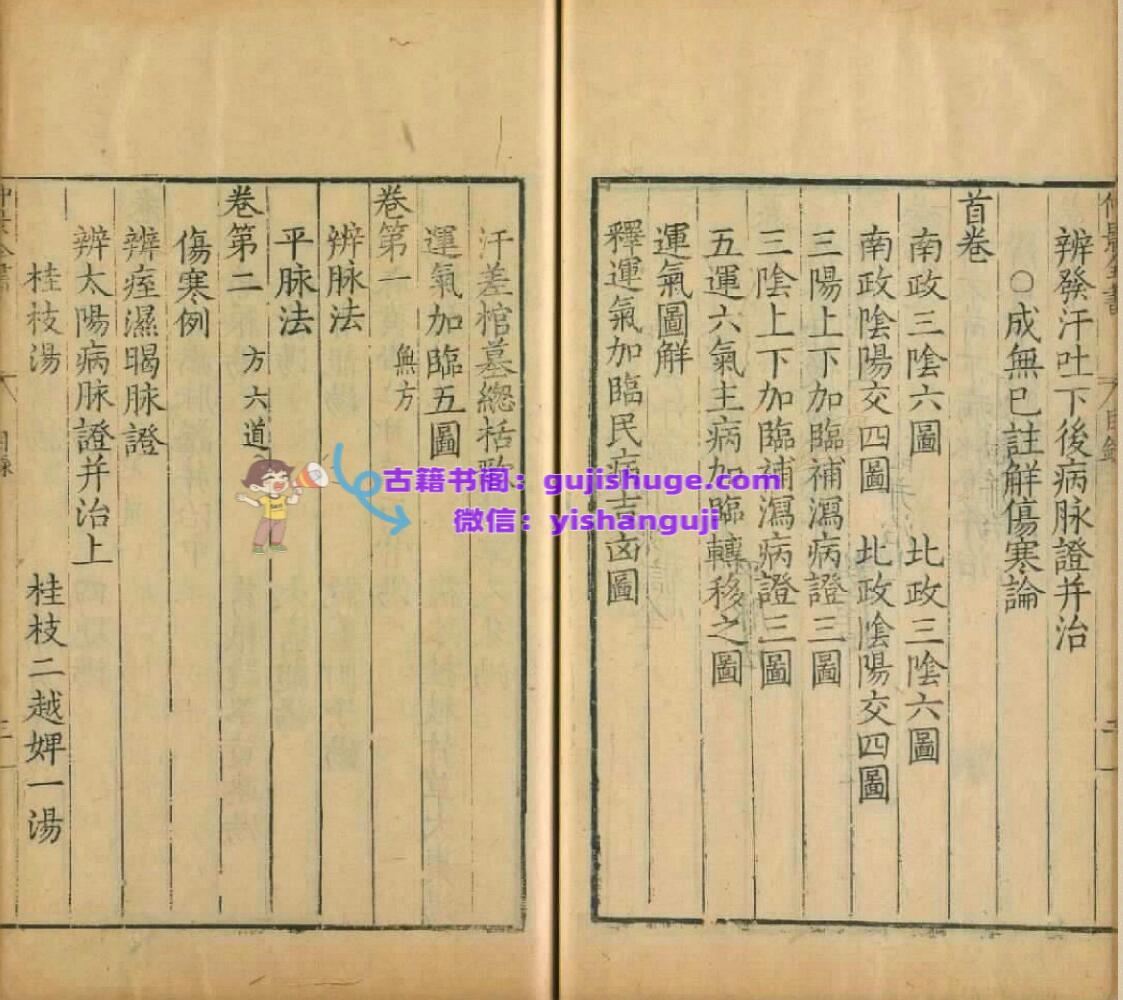 辨發汗吐下後病脉證并治
○成無已註解傷寒論
首卷
南政三陰六圖 北政三陰六圖
南政陰陽交四圖 北政陰陽交四圖
三陽上下加臨補瀉病證三圖
三陰上下加臨補瀉病證三圖
五運六氣主病加臨轉移之圖
運氣圖解
釋運氣加臨民病吉凶圖
汗差棺墓總括歌
運氣加臨五圖
卷第一 無方
辨脉法
平脉法
卷第二 方六道
傷寒例
辨痓濕暍脉證
辨太陽病脉證并治上
桂枝湯 桂枝二越婢一湯
古籍书阁：gujishuge.com
微信：yishanguji